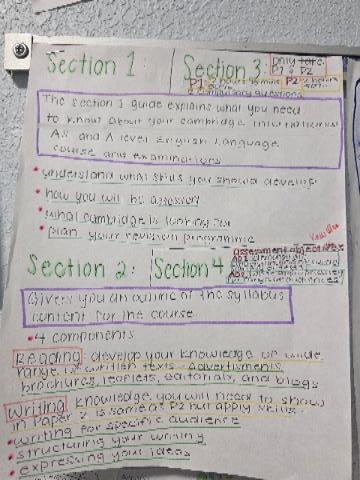 Section 1:
Section 3:
only forc
P1 & P2
P1 2 hours 15 mins P2 2 hours
compulsory questions
The section 1 guide explains what you need
to know about your cambridge international
AS and A level English Language
course and examinations
• understand what skills you should develop
• how you will be assessed
• what cambridge is looking for
• plan your revision programme
Section 2:
Section 4
assessment objectives
Gives you an outline of the syllabus
content for the course
• 4 components
Reading develop your knowledge of wide
range of written texts. Advertisments,
brochures, leaflets, editorials, and blogs
Writing knowledge you will need to show
in Paper 2 is same as P2 but apply skills.
• writing for specific audience
• structuring your writing
• expressing your ideas